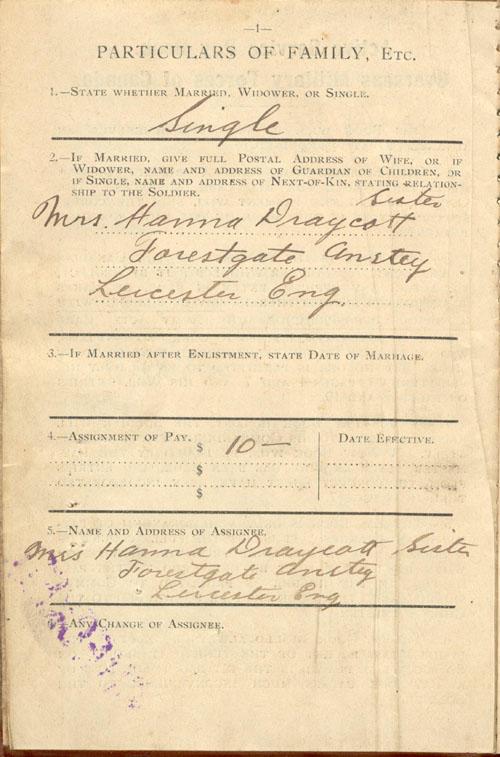 —1—
PARTICULARS OF FAMILY, ETC.
1.—STATE WHETHER MARRIED, WIDOWER, OR SINGLE.
Single
2.—IF MARRIED, GIVE FULL POSTAL ADDRESS OF WIFE, OR IF
WIDOWER, NAME AND ADDRESS OF GUARDIAN OF CHILDREN, OR
IF SINGLE, NAME AND ADDRESS OF NEXT-OF-KIN, STATING RELATION-
SHIP TO THE SOLDIER.
Sister
Mrs. Hanna Draycott
Forestgate Anstey
Leicester Eng.
3.—IF MARRIED AFTER ENLISTMENT, STATE DATE OF MARIAGE.
4.—ASSIGNMENT OF PAY. $ 10— DATE EFFECTIVE.
$
$
5.—NAME AND ADDRESS OF ASSIGNEE.
Mrs Hanna Draycott Sister
Forestgate Anstey
Leicester Eng
6.—ANY CHANGE OF ASSIGNEE.